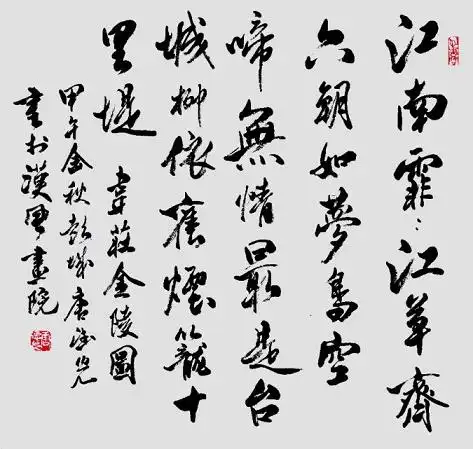 江南霏:江草齊
六朝如夢鳥空
啼無情最是台
城柳依舊煙籠十
里堤 韋莊金陵圖
甲午金秋彭城唐
書於漢風畫院